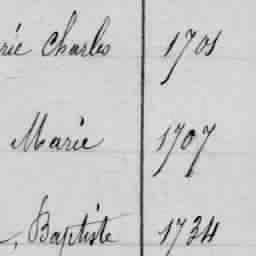 rie Charles 1701
Marie 1707
, Baptiste 1734